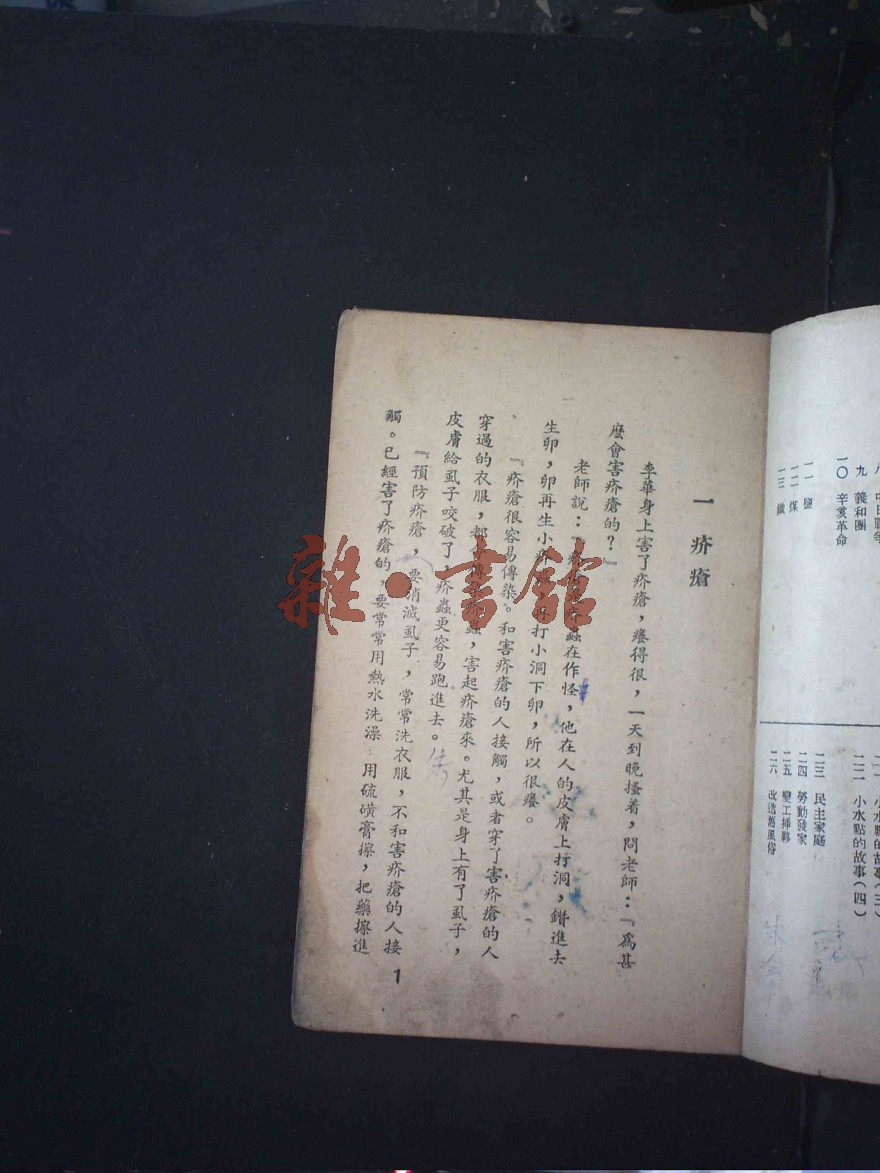 九 義和團
一〇 辛亥革命
一一 鹽
一二 煤
一三 鐵
小水點的故事(三)
二二 小水點的故事(四)
二三 民主家庭
二四 勞動發家
二五 變工
二六 改造舊風俗
一 疥瘡
李華身上害了疥瘡,癢得很,一天到晚搔着,問老師:『爲甚
麼會害疥瘡的?』
老師說:『疥瘡是疥蟲在作怪,他在人的皮膚上打洞,鑽進去
生卵,卵再生小疥蟲,再打小洞下卵,所以很癢。
『疥瘡很容易傳染。和害疥瘡的人接觸,或者穿了害疥瘡的人
穿過的衣服,都會傳染疥蟲,害起疥瘡來。尤其是身上有了虱子,
皮膚給虱子咬破了,疥蟲更容易跑進去。
『預防疥瘡,要消滅虱子,常常洗衣服,不和害疥瘡的人接
觸。已經害了疥瘡的,要常常用熱水洗澡,用硫磺膏擦,把藥擦進
1
雜·書館